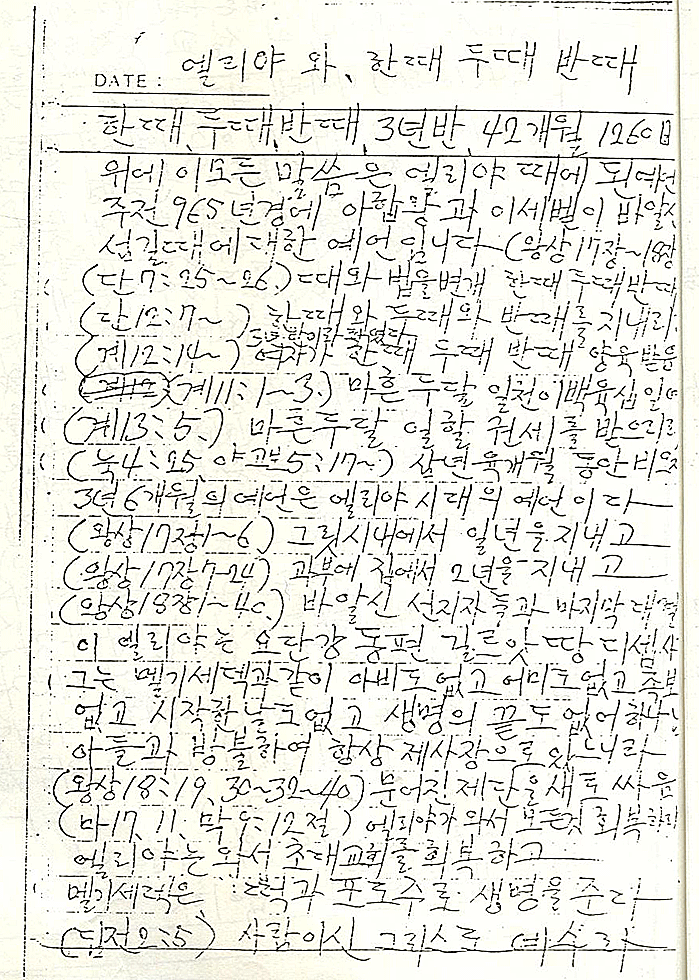 엘리야 와, 한때 두때 반때
DATE :
한때, 두때, 반때, 3년반, 42개월, 1260日
위에 이모든 말씀은 엘리야 때에 된예언
주전 965년경에 아합왕과 이세벨이 바알신
섬길때에대한 예언 입니다 (왕상17장~18장
(단7:25~26.) 때와 법을변개 한때 두때반때
(단12:7~ ) 한때와 두때와 반때를 지내리.
(계12:14~) 여자가 한때 두때 반때 양육 받음
(계11:1~3.) 마흔두달 일천이백육십일
(계13:5.) 마흔두달 일할 권세를 받으리라
(눅4:25 야고보5:17~) 삼년육개월 동안 비
3년6개월의 예언은 엘리야시대의 예언이다
(왕상17장1~6) 그릿시내에서 일년을 지내고
(왕상17장7-24) 과부에 집에서 2년을 지내고
(왕상18장1~40.) 바알신 선지자들과 마지막 대결
이 엘리야는 요단강 동편 길르앗땅 디셉사
그는 멜기세덱과같이 아비도없고 어미도없고 족보
없고 시작한날도없고 생명의 끝도 없어하나님
아들과 방불하여 항상 제사장으로있느니라
(왕상18:19, 30~32~40) 무너진제단을새로 싸음
(마17, 11, 막9:12절) 엘리야가 와서 모든것 회복하리
엘리야는 와서 초대교회를 회복하고
멜기세덱은 떡과 포도주로 생명을 준다
(딤전2:5) 사람이신 그리스도 예수라